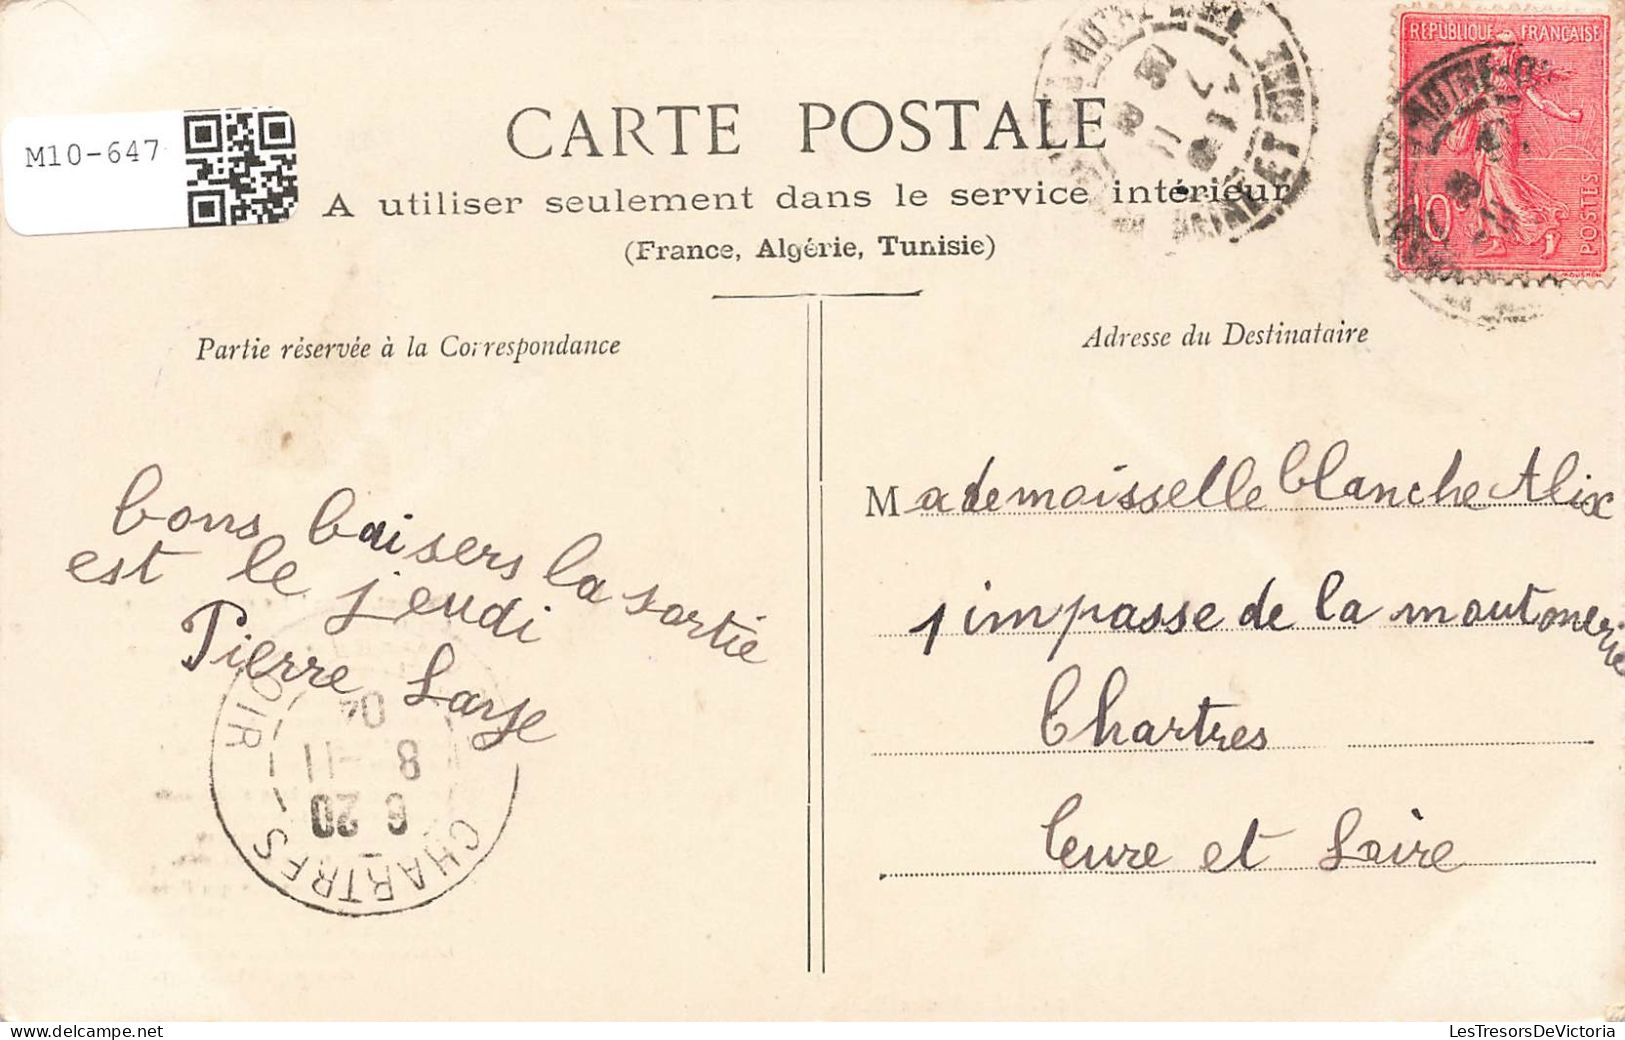 M10-647
CARTE POSTALE
A utiliser seulement dans le service intérieur
(France, Algérie, Tunisie)
REPUBLIQUE FRANÇAISE
10
POSTES
Partie réservée à la Correspondance
Adresse du Destinataire
bons baisers la sortie
est le jeudi
Pierre
Mademoisselle blanche Alix
1 impasse de la moutonerie
Chartres
Eure et Loire
CHARTRES
6 20
8 -11
04
LesTresorsDeVictoria